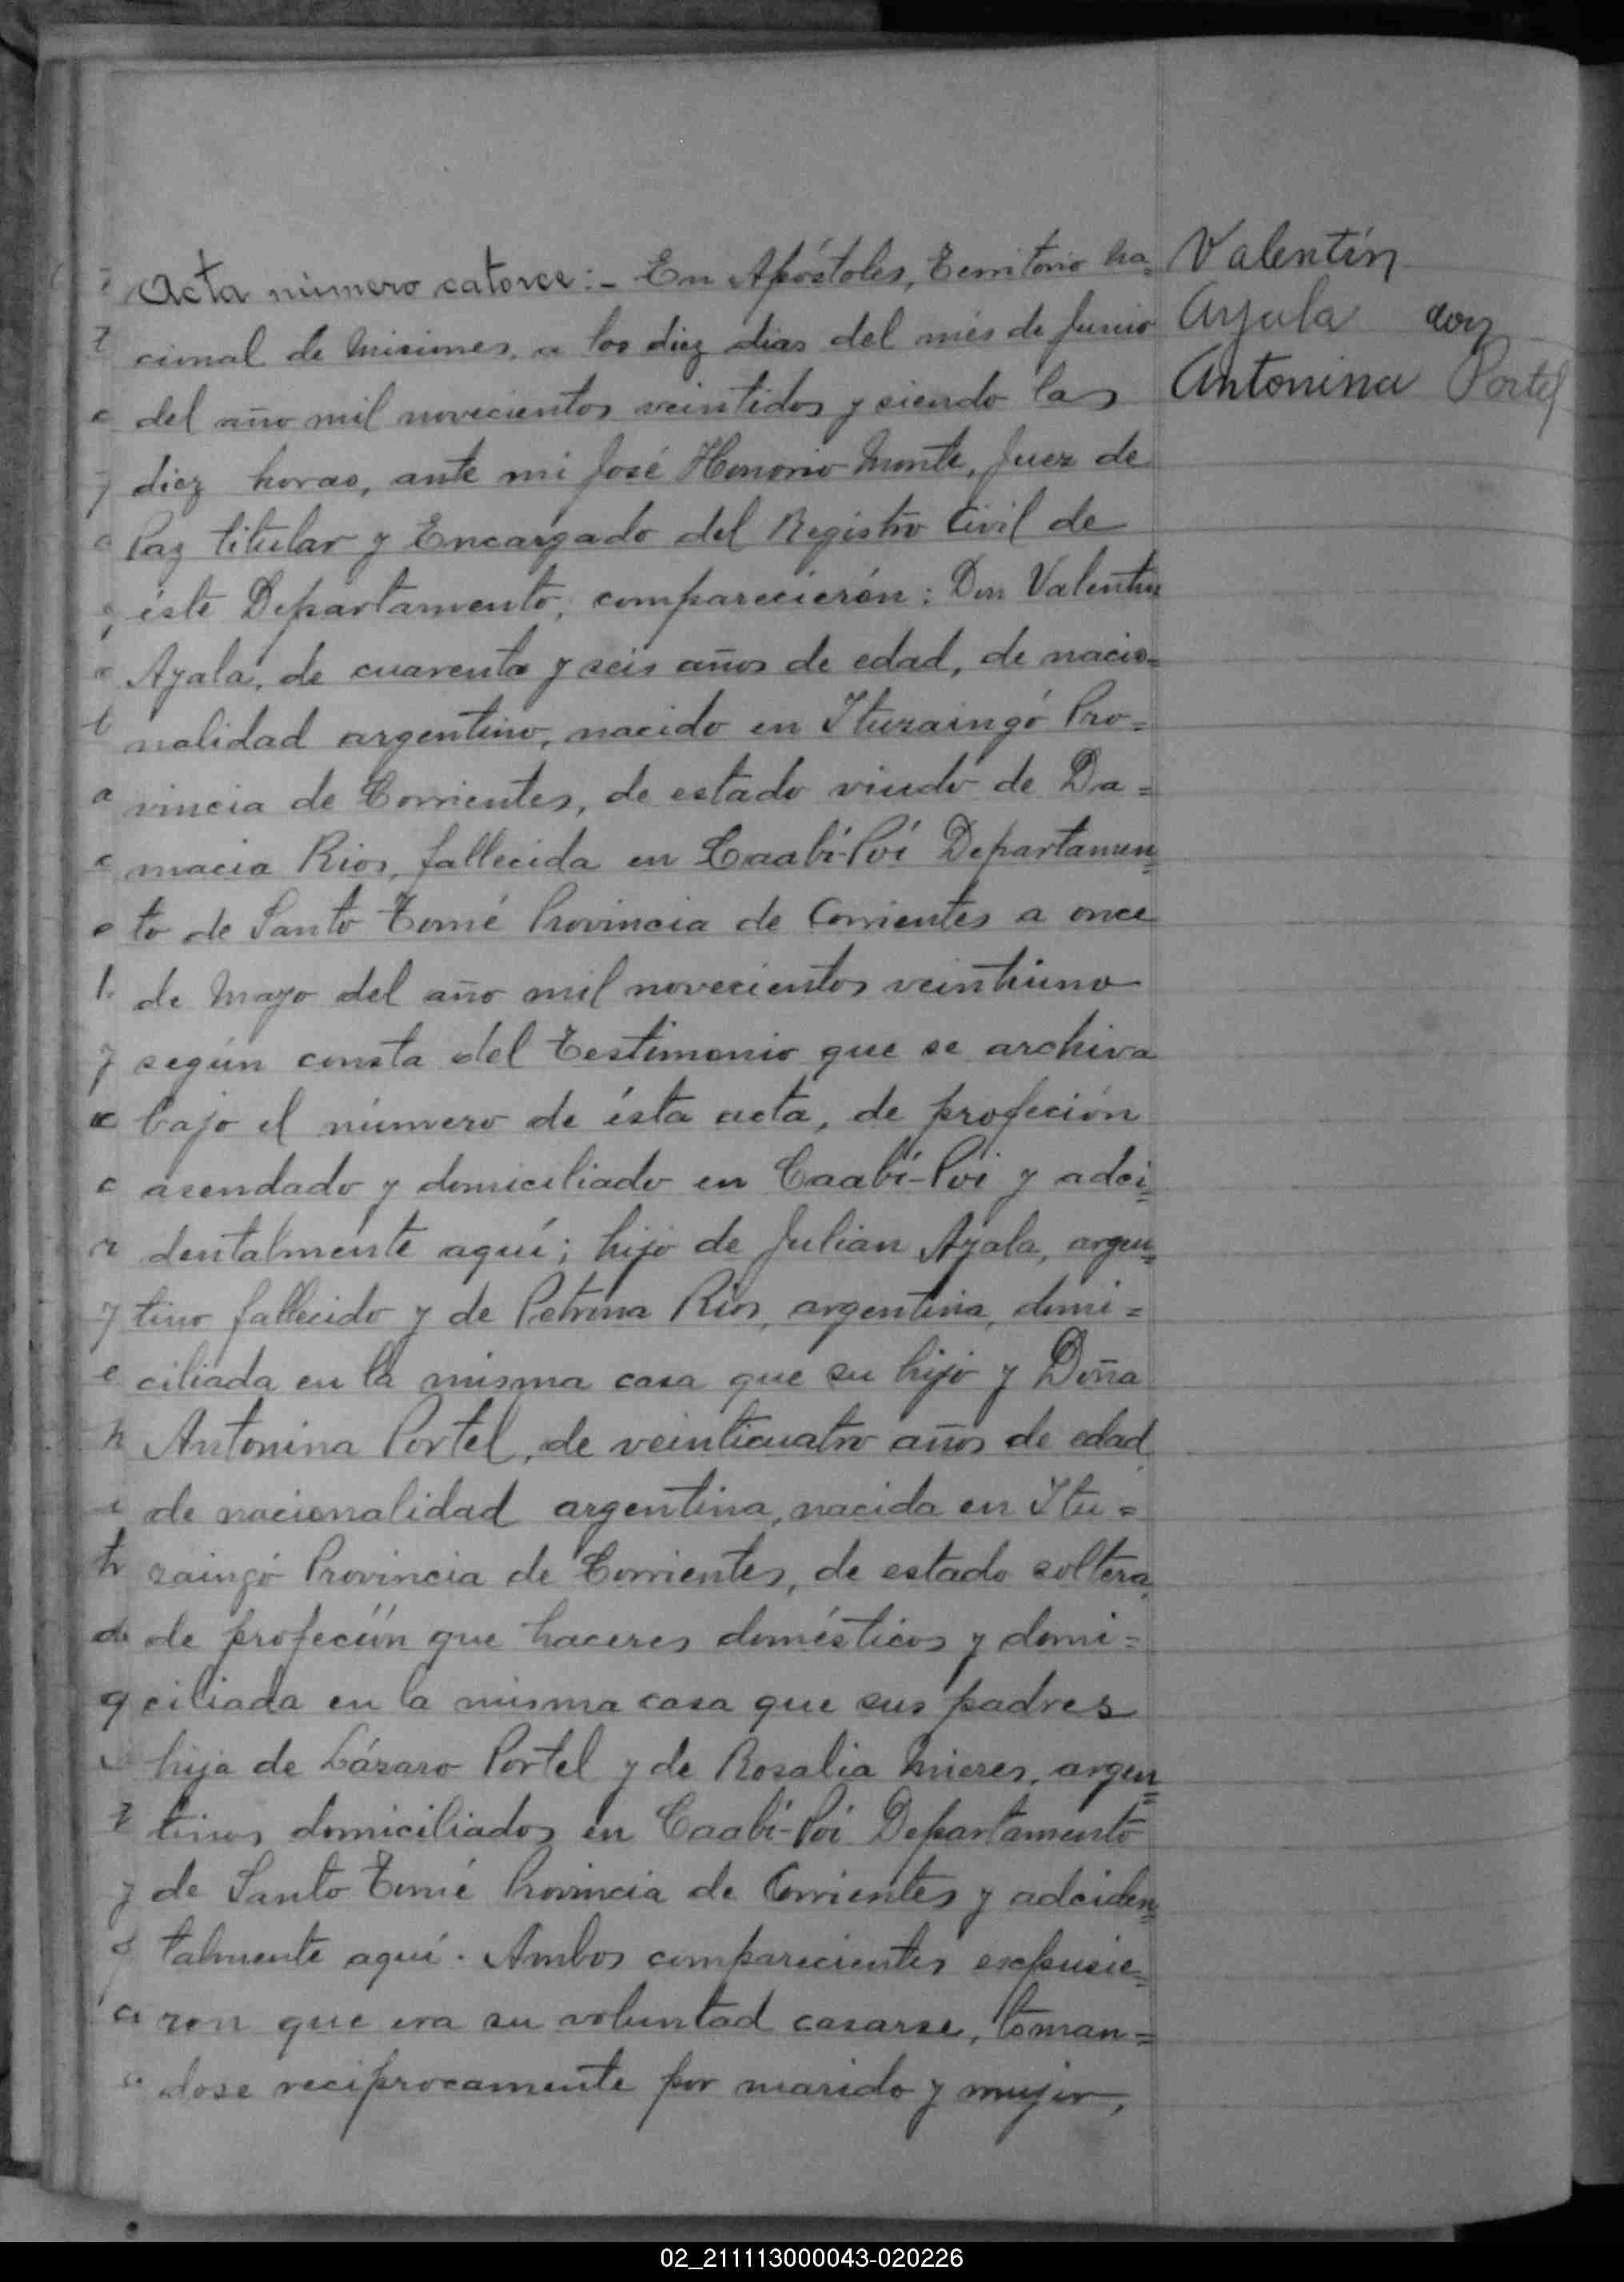 Acta número catorce:- En Apóstoles, Territorio Na=
cional de Misiones, a los diez dias del més de Junio
del año mil novecientos veintidos y siendo las
diez horas, ante mi José Honorio Monte, Juez de
Paz titular y Encargado del Registro Civil de
éste Departamento, comparecierón: Don Valentin
Ayala, de cuarenta y seis años de edad, de nacio=
nalidad argentino, nacido en Ituzaingó Pro=
vincia de Corrientes, de estado viudo de Da=
macia Rios, fallecida en Caabí-Poí Departamen=
to de Santo Tomé Provincia de Corrientes a once
de Mayo del año mil novecientos veintiuno
según consta del Testimonio que se archiva
bajo el número de ésta acta, de profeción
asendado y domiciliado en Caabí-Poi y adci=
dentalmente aquí; hijo de Julian Ayala, argen=
tino fallecido y de Petrona Rios, argentina, domi=
ciliada en la misma casa que su hijo y Doña
Antonina Portel, de veinticuatro años de edad,
de nacionalidad argentina, nacida en Itu=
zaingó Provincia de Corrientes, de estado soltera,
de profeción que haceres domésticos y domi=
ciliada en la misma casa que sus padres
hija de Lázaro Portel y de Rosalia Mieres, argen=
tinos domiciliados en Caabí-Poi Departamento
de Santo Tomé Provincia de Corrientes y adciden=
talmente aquí. Ambos comparecientes expusie=
ron que era su voluntad casarse, toman=
dose reciprocamente por marido y mujer,
Valentín
Ayala con
Antonina Portel
02_211113000043-020226